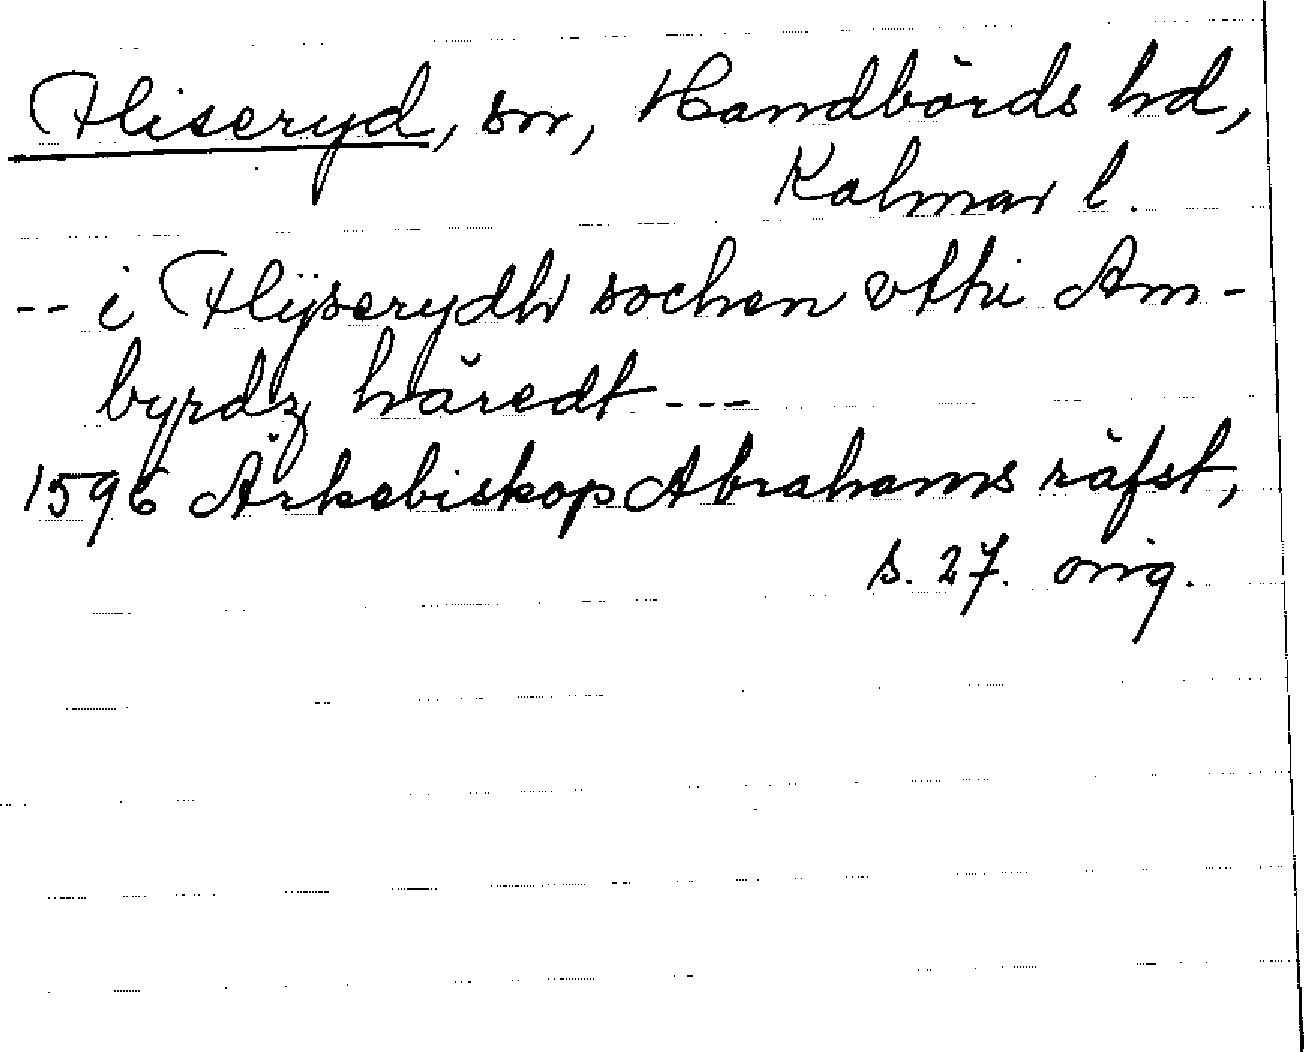 Fliseryd, sn, Handbörds hd,
Kalmar l.
-- i Flÿserydh sochen vtthi Am-
byrdz häredt ---
1596 Ärkebiskop Abrahams räfst,
s. 27. orig.